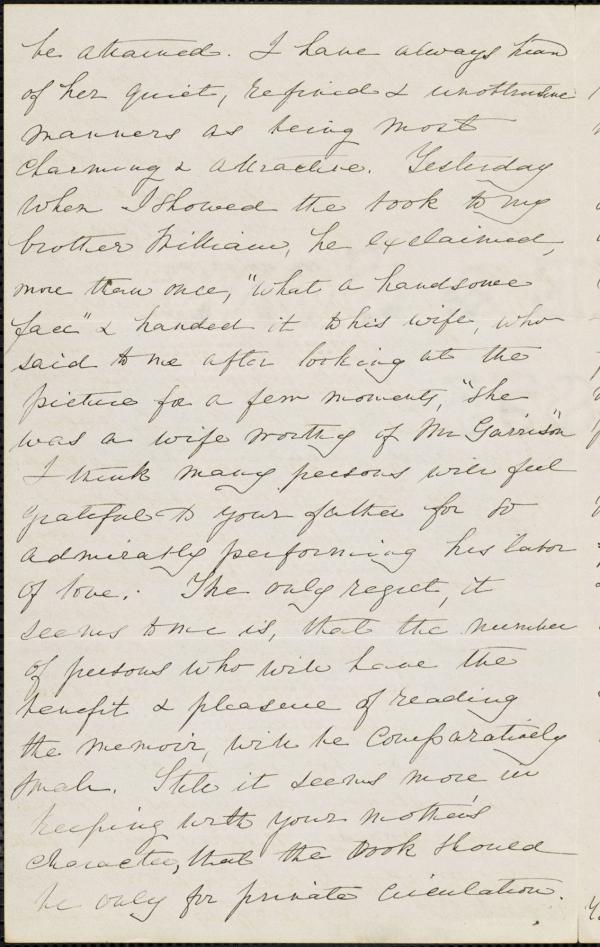 be attained. I have always
of her quiet, refined & unobtrusive
manners as being most
charming & attractive. Yesterday
when I showed the book to my
brother William, he exclaimed,
more than once, "what a handsome
face" & handed it to his wife, who
said to me after looking at the
picture for a few moments, "she
was a wife worthy of Mr Garrison"
I think many persons will feel
grateful to your father for so
admirably performing his labor
of love. The only regret, it
seems to me is, that the number
of persons who will have the
benefit & pleasure of reading
the memoir, will be comparatively
small. Still it seems more in
keeping with your mother's
character, that the book should
be only for private circulation.